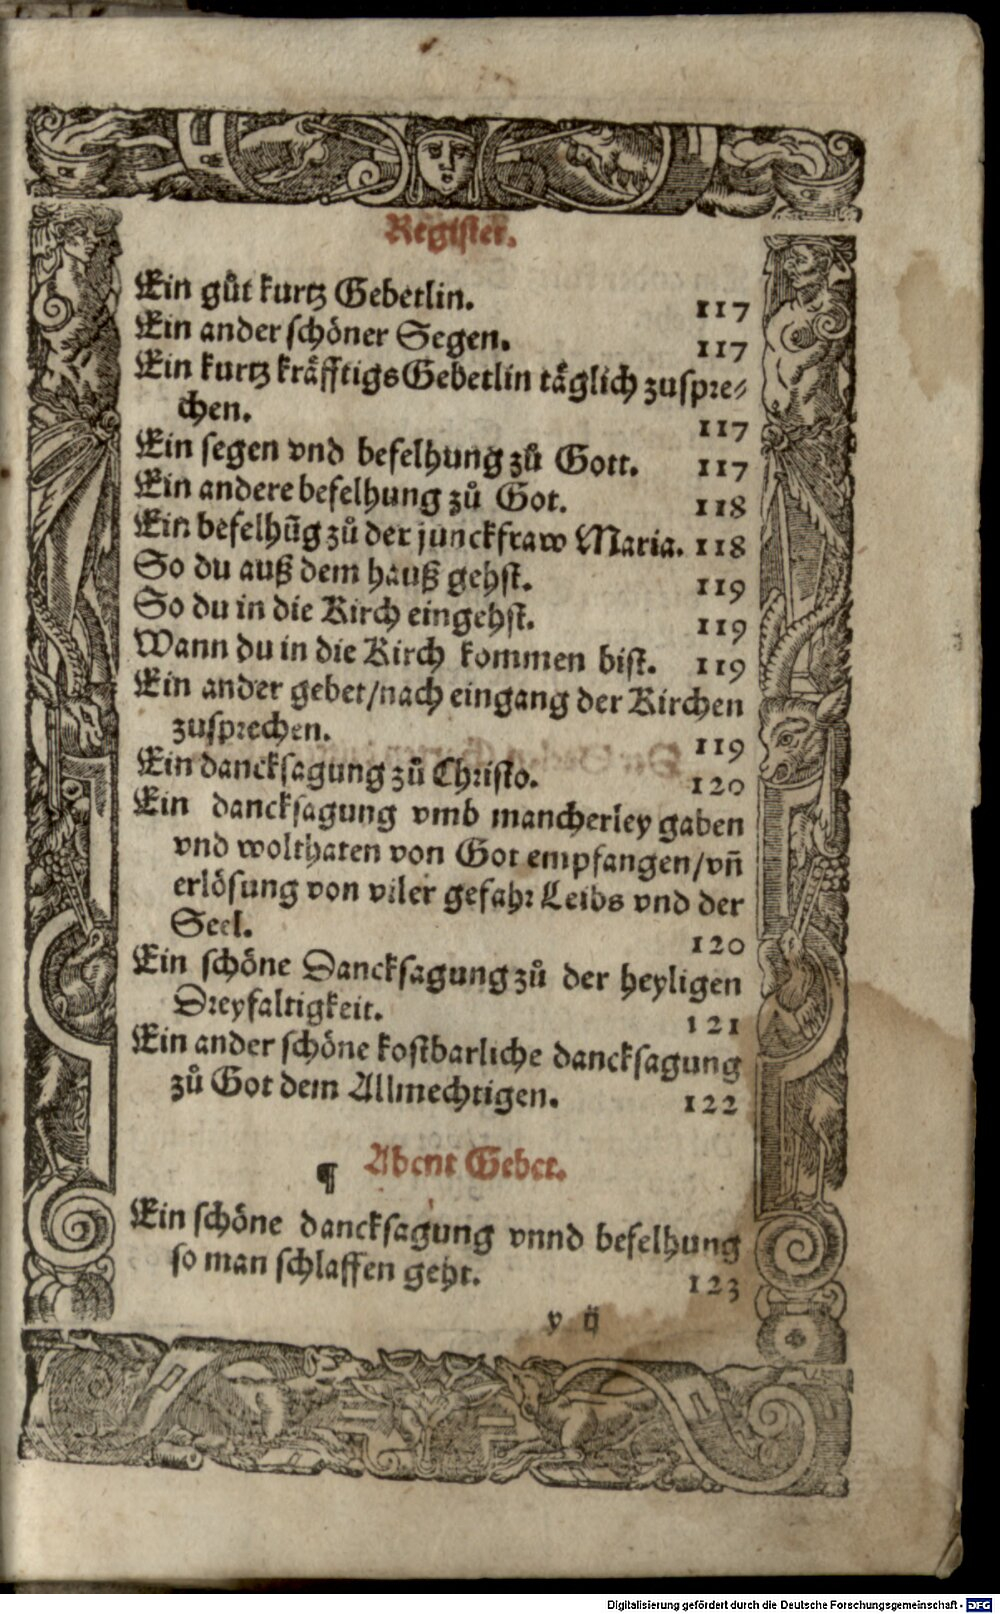 Register.
Ein gůt kurtz Gebetlin. 117
Ein ander schöner Segen. 117
Ein kurtz kräfftigs Gebetlin täglich zuspre-
chen. 117
Ein segen vnd befelhung zů Gott. 117
Ein andere befelhung zů Got. 118
Ein befelhūg zů der junckfraw Maria. 118
So du auß dem hauß gehst. 119
So du in die Kirch eingehst. 119
Wann du in die Kirch kommen bist. 119
Ein ander gebet/nach eingang der Kirchen
zusprechen. 119
Ein dancksagung zů Christo. 120
Ein dancksagung vmb mancherley gaben
vnd wolthaten von Got empfangen/vñ
erlösung von viler gefahr Leibs vnd der
Seel. 120
Ein schöne Dancksagung zů der heyligen
Dreyfaltigkeit. 121
Ein ander schöne kostbarliche dancksagung
zů Got dem Allmechtigen. 122
¶ Abent Gebet.
Ein schöne dancksagung vnnd befelhung
so man schlaffen geht. 123
v ij
Digitalisierung gefördert durch die Deutsche Forschungsgemeinschaft - DFG